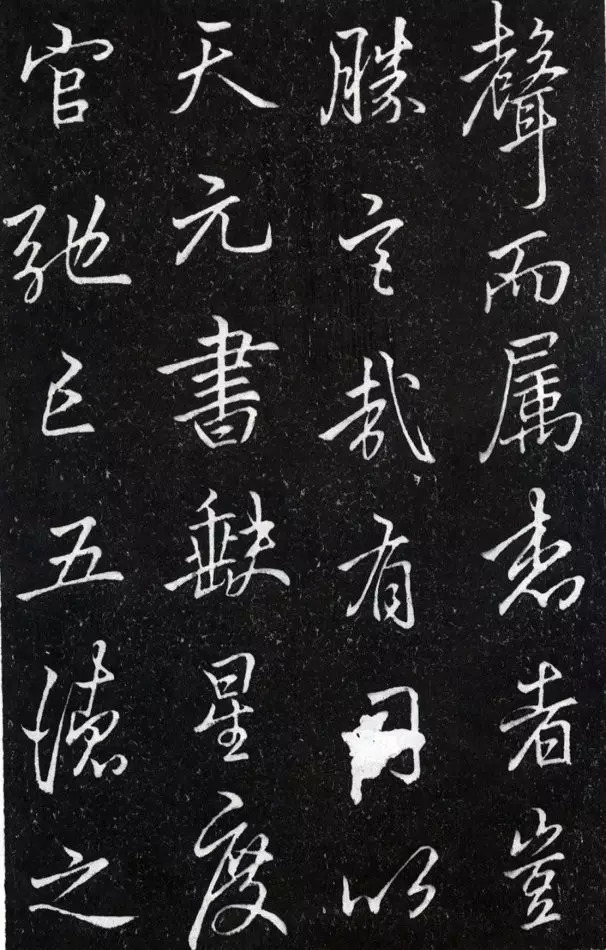 聲而属者豈
勝言哉有以
天元書缺星度
官弛已五德之